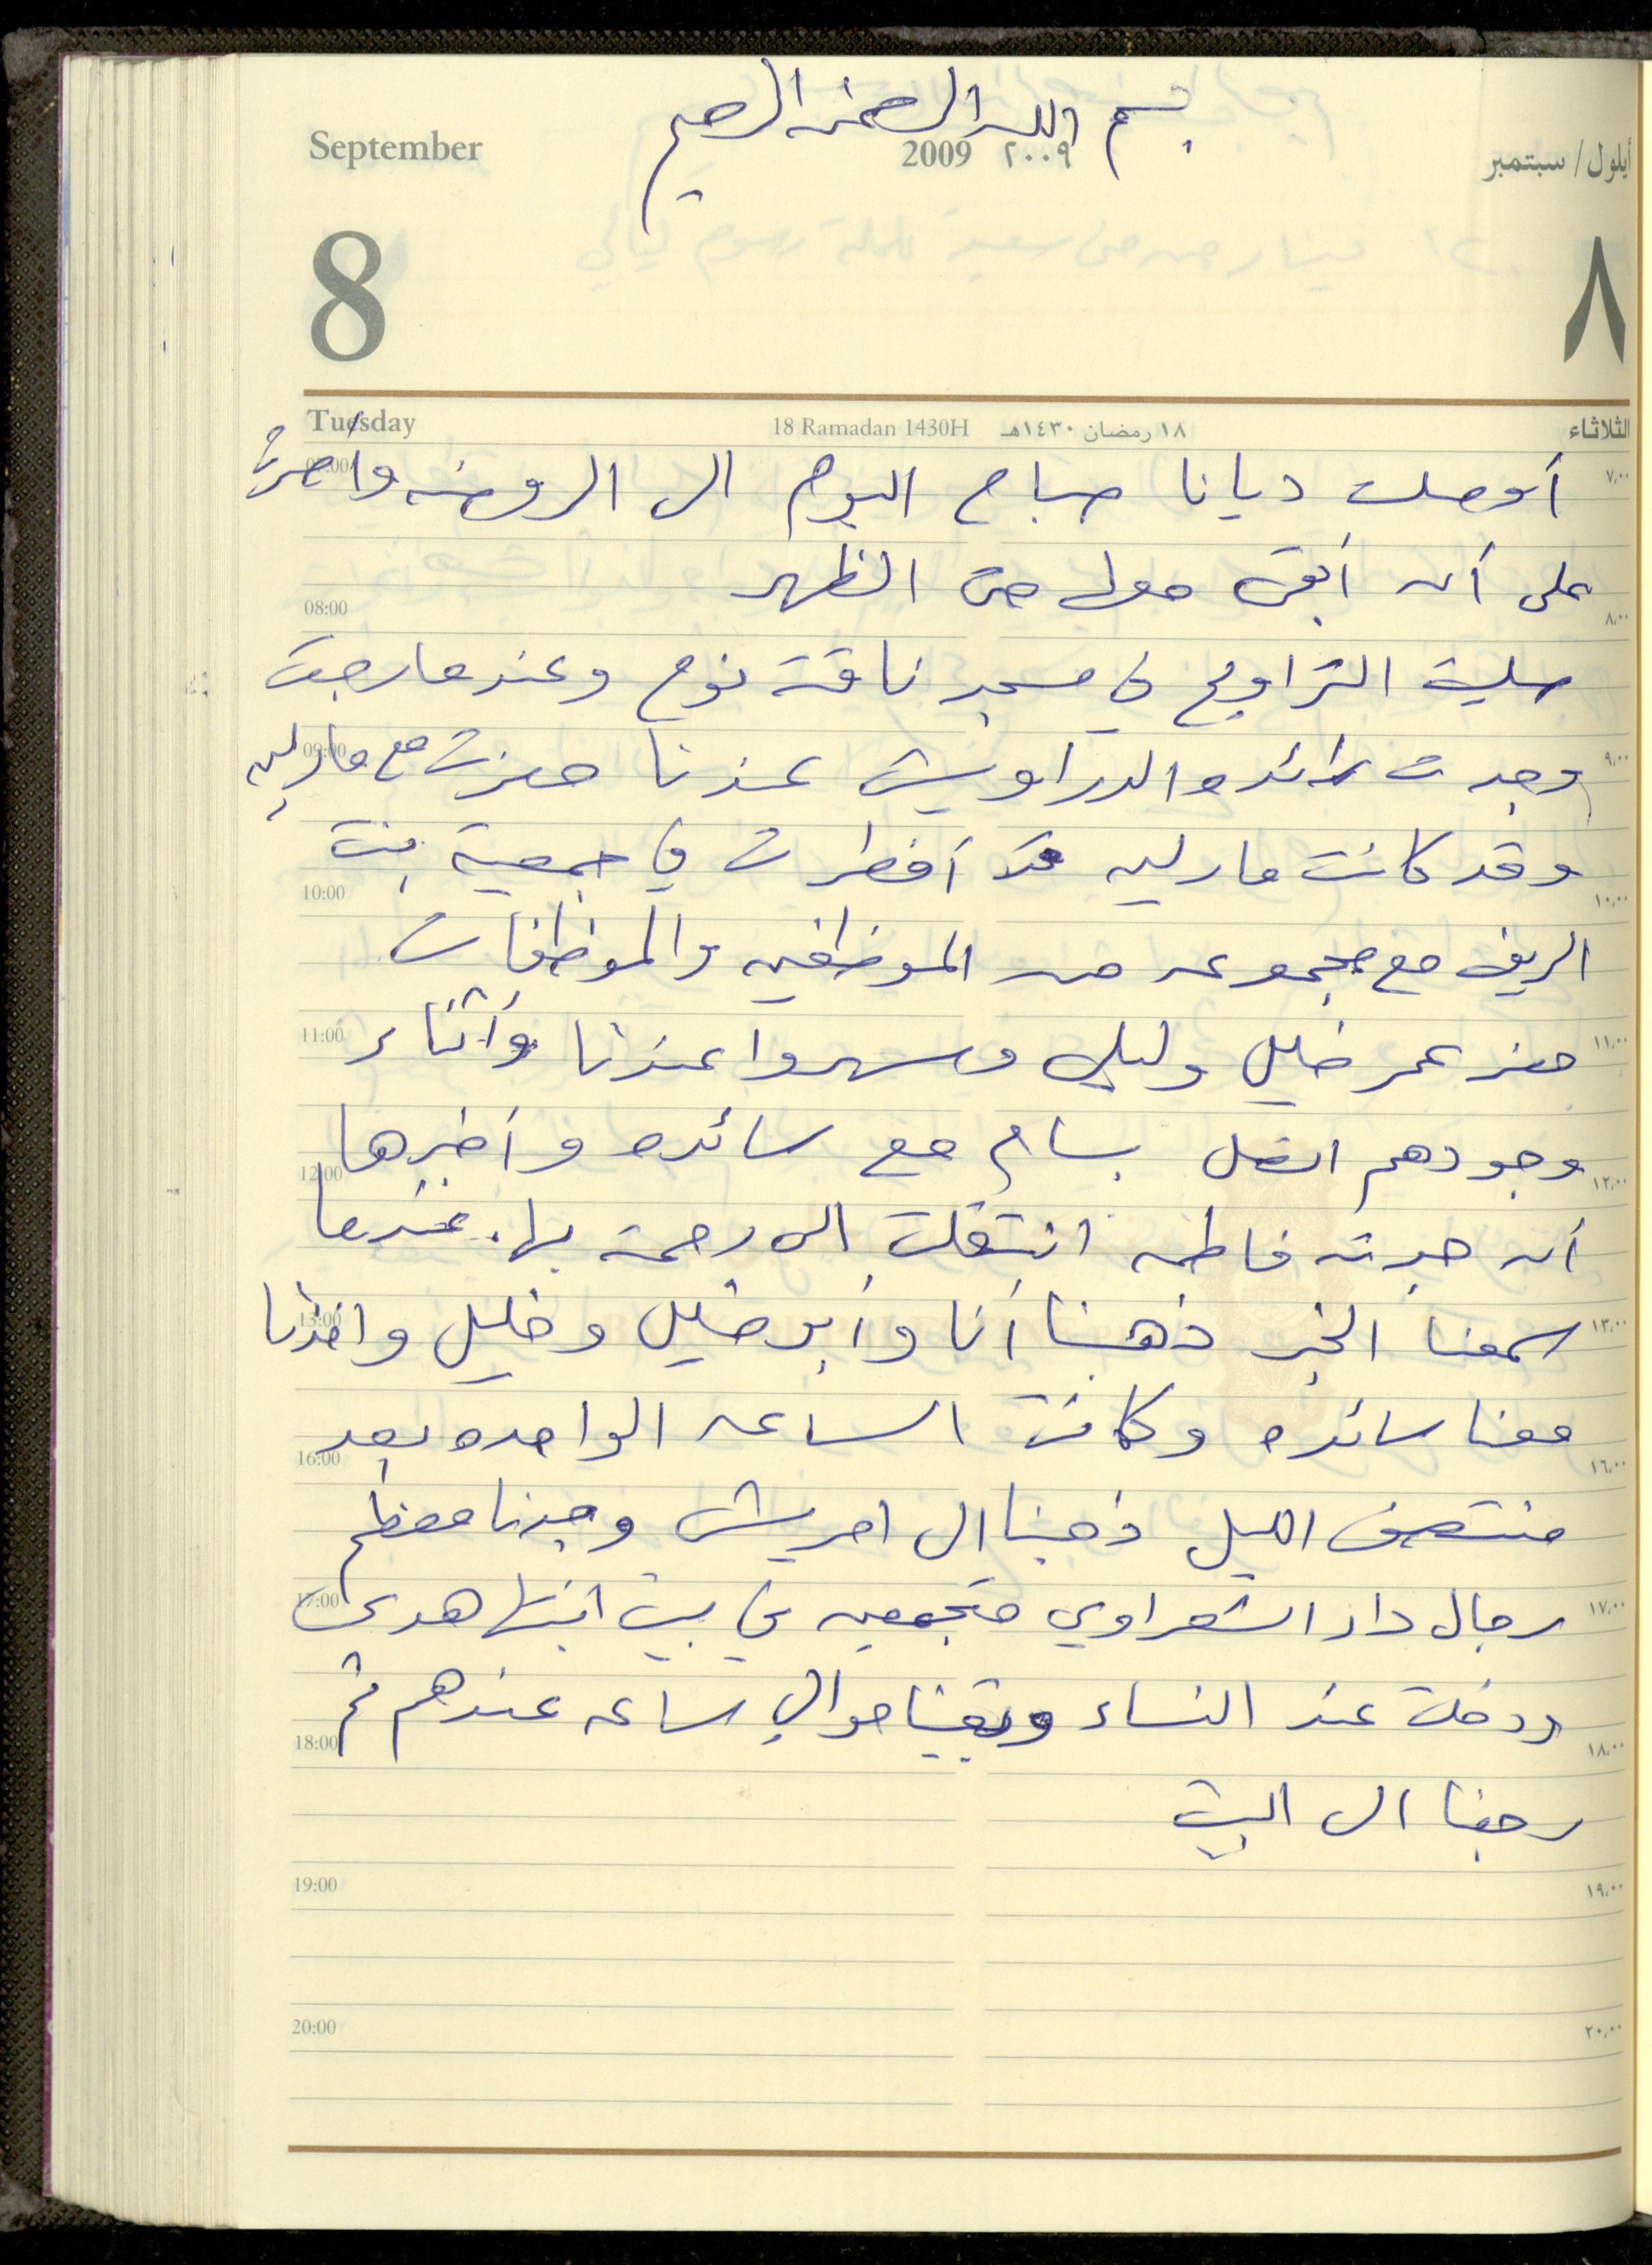 بسم الله الرحمن الرحيم
September
2009 ٢٠٠٩
أيلول / سبتمبر
8
٨
Tuesday
18 Ramadan 1430H
١٨ رمضان ١٤٣٠هـ
الثلاثاء
07:00 ٧,٠٠
أوصلت ديانا صباح اليوم الى الروضه واصرت
على أن أبقى معها حتى الظهر
08:00 ٨,٠٠
صليت التراويح في مسجد ناقة نوح وعندما رجعت
09:00 ٩,٠٠
وجدت والدراويش عندنا حضرت مع مارلين
وقد كانت مارلين أفطرت في جمعية بنت
10:00 ١٠,٠٠
الريف مع مجموعه من الموظفين والموظفات
11:00 ١١,٠٠
حضر عمر خليل وليلى وسهروا عندنا وأثناء
وجودهم اتصل بسام مع سائده وأخبرها
12:00 ١٢,٠٠
أن جدته فاطمه انتقلت الى رحمة ربها. عندما
13:00 ١٣,٠٠
سمعنا الخبر ذهبنا أنا وأبو خليل وخليل واخذنا
معنا سائده وكانت الساعه الواحده بعد
16:00 ١٦,٠٠
منتصف الليل ذهبنا الى امريش وجدنا معظم
17:00 ١٧,٠٠
رجال دار الشعراوي متجمعين في بيت ابنها هدى
ودخلت عند النساء وبقينا حوالي ساعه عندهم ثم
18:00 ١٨,٠٠
رجعنا الى البيت
19:00 ١٩,٠٠
20:00 ٢٠,٠٠